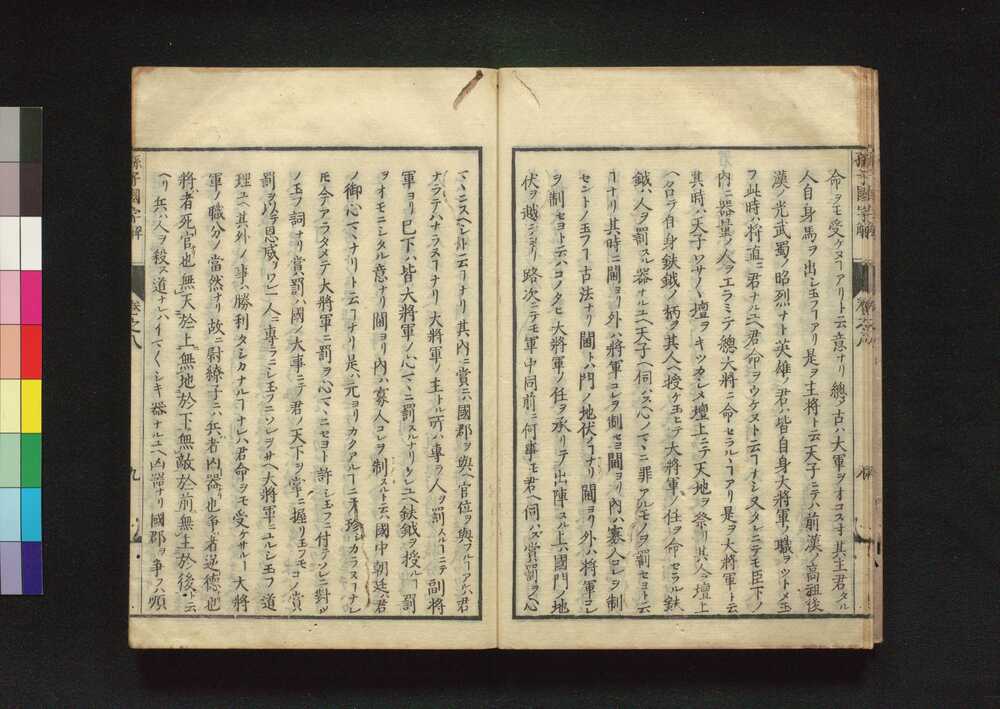 命ヲモ受ケヌヿアリト云意ナリ總ノ古ハ大軍ヲオコスオ其主君タル
人自身馬ヲ出シ玉フヿアリ是ヲ主将ト云天子ニテハ前漢ノ高祖後
漢ノ光武蜀ノ昭烈ナト英雄ノ君ハ皆自身大将軍ノ職ヲツトメ玉
フ此時ハ将直ニ君ナルユヘ君命ヲウケヌト云ヿナシ又タレニテモ臣下ノ
内ニ器量ノ人ヲエラミテ總大将ニ命セラルヽヿアリ是ヲ大将軍ト云
其時ハ天子ソサノヽ壇ヲキツカシメ壇上ニテ天地ヲ祭リ其人ニ壇上
ヘ名ラ自身鈇鉞ノ柄ヲ其人ヘ授ケ玉ヒテ大将軍ノ任ヲ命セラル鈇
鉞ハ人ヲ罰スル器ナルユヘ天子ヘ伺ハス心ノマヽニ罪アルモノヲ罰セヨト云
ヿナリ其時ニ閫ヨリ外ハ将軍コレヲ制セヨ閫ヨリ内ハ寡人コレヲ制
セントノ玉フヿ古法ナリ閫トハ門ノ地伏ノヿナリ閫ヨリ外ハ将軍コレ
ヲ制セヨト云ハコノタヒ大将軍ノ任ヲ承リテ出陣スル上ハ國門ノ地
伏ヲ越シヨリ路次ニテモ軍中同前ニ何事モ君ヘ伺ハズ賞罰ヲ心
マヽニスヘシト云ヿナリ其内ニ賞ニハ國郡ヲ與ヘ官位ヲ與フルヿアルハ君
ナラテハナラヌヿナリ大将軍ノ主トル所ハ専ラ人ヲ罰スルヿニテ副将
軍ヨリ已下ハ皆大将軍ノ心マヽニ罰スルナリケレユヘ鈇鉞ヲ授ルヿ罰
ヲオモニシタル意ナリ閫ヨリ内ハ寡人コレヲ制スルト云ハ國中朝廷ハ君
ノ御心マヽナリト云ヿナリ是ハ元ヨリカクアルヿニテ珍シカラヌヿナレ
𪜈今アラタメテ大将軍ニ罰ヲ心マヽニセヨト許シ玉フニ付テソレニ對ル
ノ玉フ詞ナリ賞罰ハ國ノ大事ニテ君ノ天下ヲ掌ニ握リ玉フモコノ賞
罰ヲ以テ恩威ヲワレ一人ニ専ラニシ玉フニソレヲサヘ大将軍ニユルシ玉フ道
理ユヘ其外ノ事ハ勝利タシカナルヿナレハ君命ヲモ受ケサルヿ大将
軍ノ職分ノ當然ナリ故ニ尉繚子ニハ兵者凶器也争者逆德也
将者死官也無天於上無地於下無敵於前無主於後ト云
ヘリ兵ハ人ヲ殺ス道ナレハイマ〱シキ器ナルユヘ凶器ナリ國郡ヲ争フハ順
孫子國字解
卷之八
九